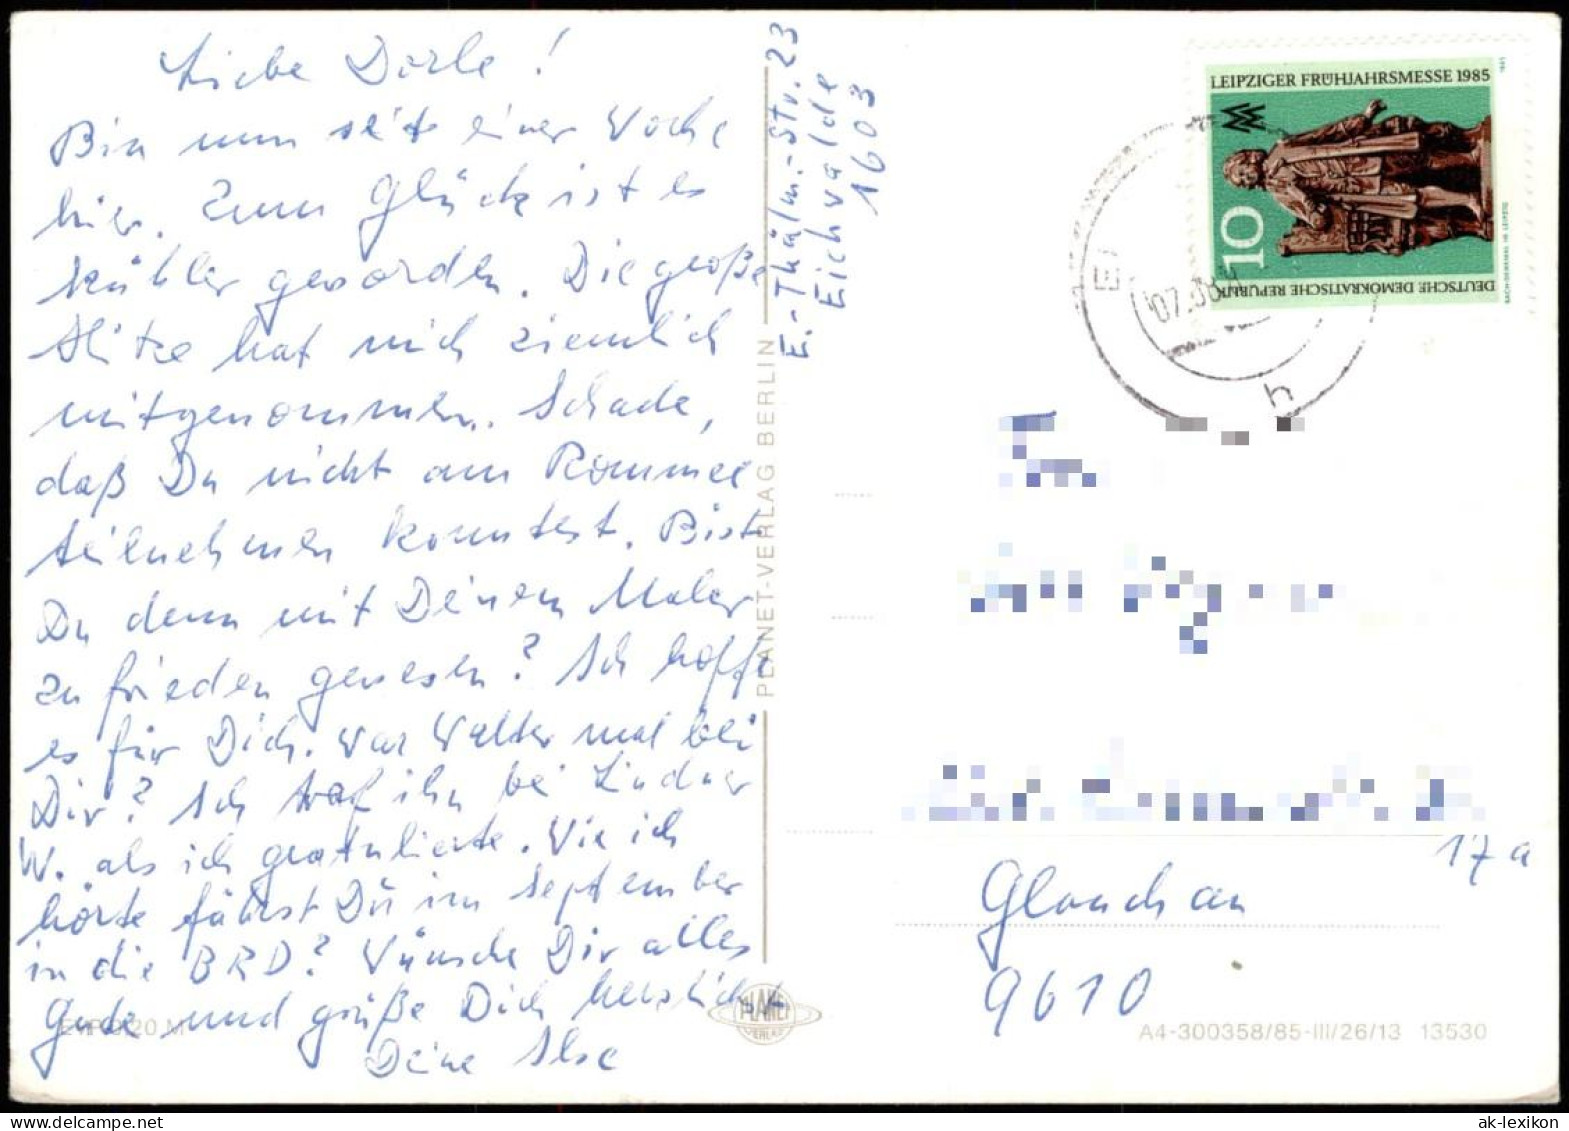 Liebe Dorle!
Bin nun seit einer Woche
hier. Zum Glück ist es
kühler geworden. Die große
Hitze hat mich ziemlich
mitgenommen. Schade,
daß Du nicht am Rommee
teilnehmen konntest. Bist
Du denn mit Deinem Maler
zufrieden gewesen? Ich hoffe
es für Dich. War Walter mal bei
Dir? Ich traf ihn bei Lindner
W. als ich gratulierte. Wie ich
hörte fährst Du im September
in die BRD? Wünsche Dir alles
Gute und grüße Dich herzlichst
Deine Ilse
E.-Thälm.-Str. 23
Eichwalde
1603
PLANET-VERLAG BERLIN
PLANET
VERLAG
EVP 0,20 M
LEIPZIGER FRÜHJAHRSMESSE 1985
10
DEUTSCHE DEMOKRATISCHE REPUBLIK
BACH-DENKMAL IN LEIPZIG
1985
07.08.
h
17a
Glauchau
9610
A4-300358/85-III/26/13 13530
ak-lexikon